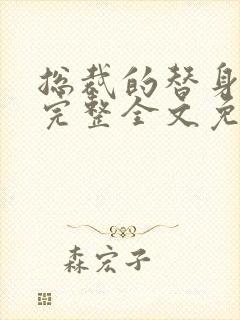 总裁的替身
完整全文免
森宏子